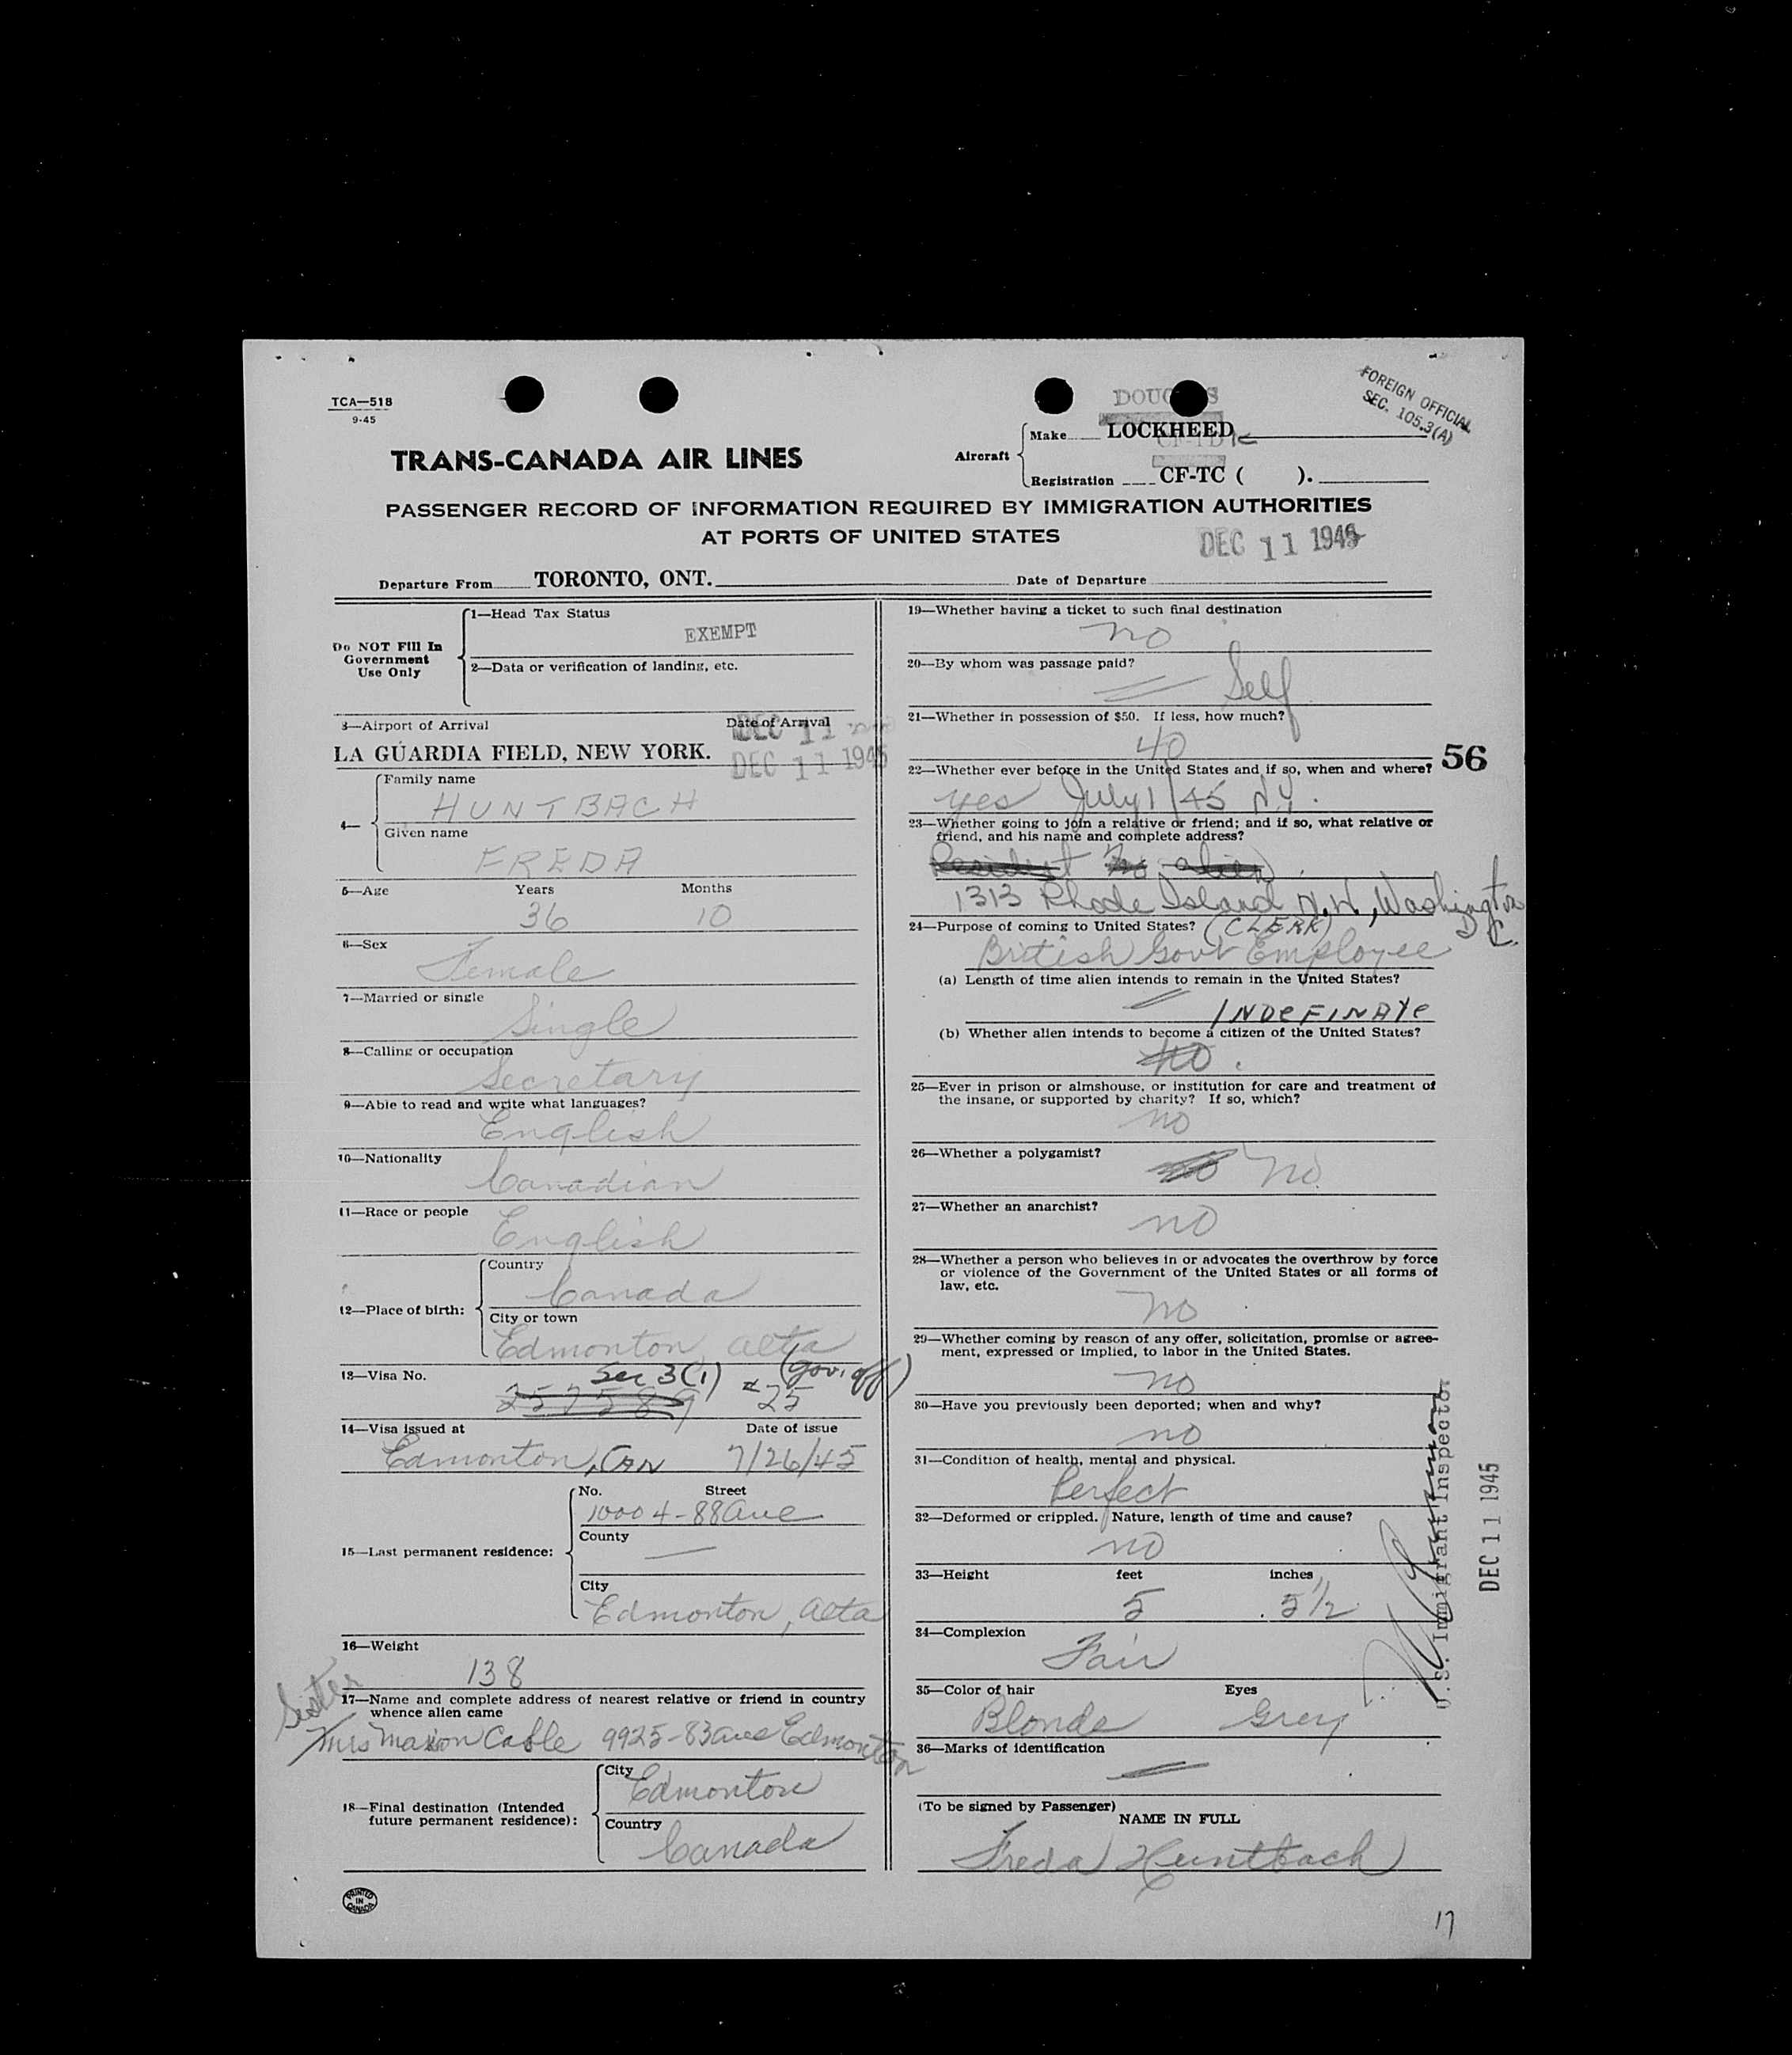 TCA—518
9-45
FOREIGN OFFICIAL
SEC. 105.3(A)
DOUGLAS
TRANS-CANADA AIR LINES
Aircraft
Make LOCKHEED
Registration CF-TC ( ).
PASSENGER RECORD OF INFORMATION REQUIRED BY IMMIGRATION AUTHORITIES
AT PORTS OF UNITED STATES
DEC 11 1945
Departure From TORONTO, ONT. Date of Departure
Do NOT Fill In
Government
Use Only
1—Head Tax Status
EXEMPT
2—Data or verification of landing, etc.
3—Airport of Arrival Date of Arrival
DEC 11
LA GUARDIA FIELD, NEW YORK. DEC 11 1945
4—
Family name
HUNTBACH
Given name
FREDA
5—Age Years Months
36 10
6—Sex
Female
7—Married or single
Single
8—Calling or occupation
Secretary
9—Able to read and write what languages?
English
10—Nationality
Canadian
11—Race or people
English
12—Place of birth:
Country
Canada
City or town
Edmonton, Alta
13—Visa No. Sec 3(1) (gov. off)
257589 25
14—Visa issued at Date of issue
Edmonton, CAN 7/26/45
15—Last permanent residence:
No. Street
10004-88 Ave
County
—
City
Edmonton, Alta
16—Weight
138
Sister
17—Name and complete address of nearest relative or friend in country
whence alien came
Mrs Marion Cable 9925-83 Ave Edmonton
18—Final destination (Intended
future permanent residence):
City
Edmonton
Country
Canada
PRINTED
IN
CANADA
19—Whether having a ticket to such final destination
no
20—By whom was passage paid?
Self
21—Whether in possession of $50. If less, how much?
40
56
22—Whether ever before in the United States and if so, when and where?
yes July 1/45 N.Y.
23—Whether going to join a relative or friend; and if so, what relative or
friend, and his name and complete address?
Resident no alien
1313 Rhode Island N.W, Washington
D.C.
24—Purpose of coming to United States? (CLERK)
British Govt Employee
(a) Length of time alien intends to remain in the United States?
INDEFINATE
(b) Whether alien intends to become a citizen of the United States?
no.
25—Ever in prison or almshouse, or institution for care and treatment of
the insane, or supported by charity? If so, which?
no
26—Whether a polygamist?
no No
27—Whether an anarchist?
no
28—Whether a person who believes in or advocates the overthrow by force
or violence of the Government of the United States or all forms of
law, etc.
no
29—Whether coming by reason of any offer, solicitation, promise or agree-
ment, expressed or implied, to labor in the United States.
no
30—Have you previously been deported; when and why?
no
31—Condition of health, mental and physical.
Perfect
32—Deformed or crippled. Nature, length of time and cause?
no
33—Height feet inches
5 5 1/2
34—Complexion
Fair
35—Color of hair Eyes
Blonde Grey
36—Marks of identification
—
(To be signed by Passenger)
NAME IN FULL
Freda Huntbach
U.S. Immigrant Inspector
DEC 11 1945
17